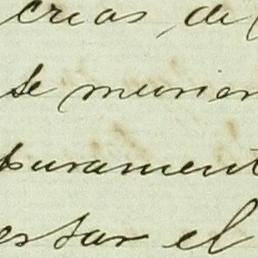 crias, de
se murier
purament
estar el